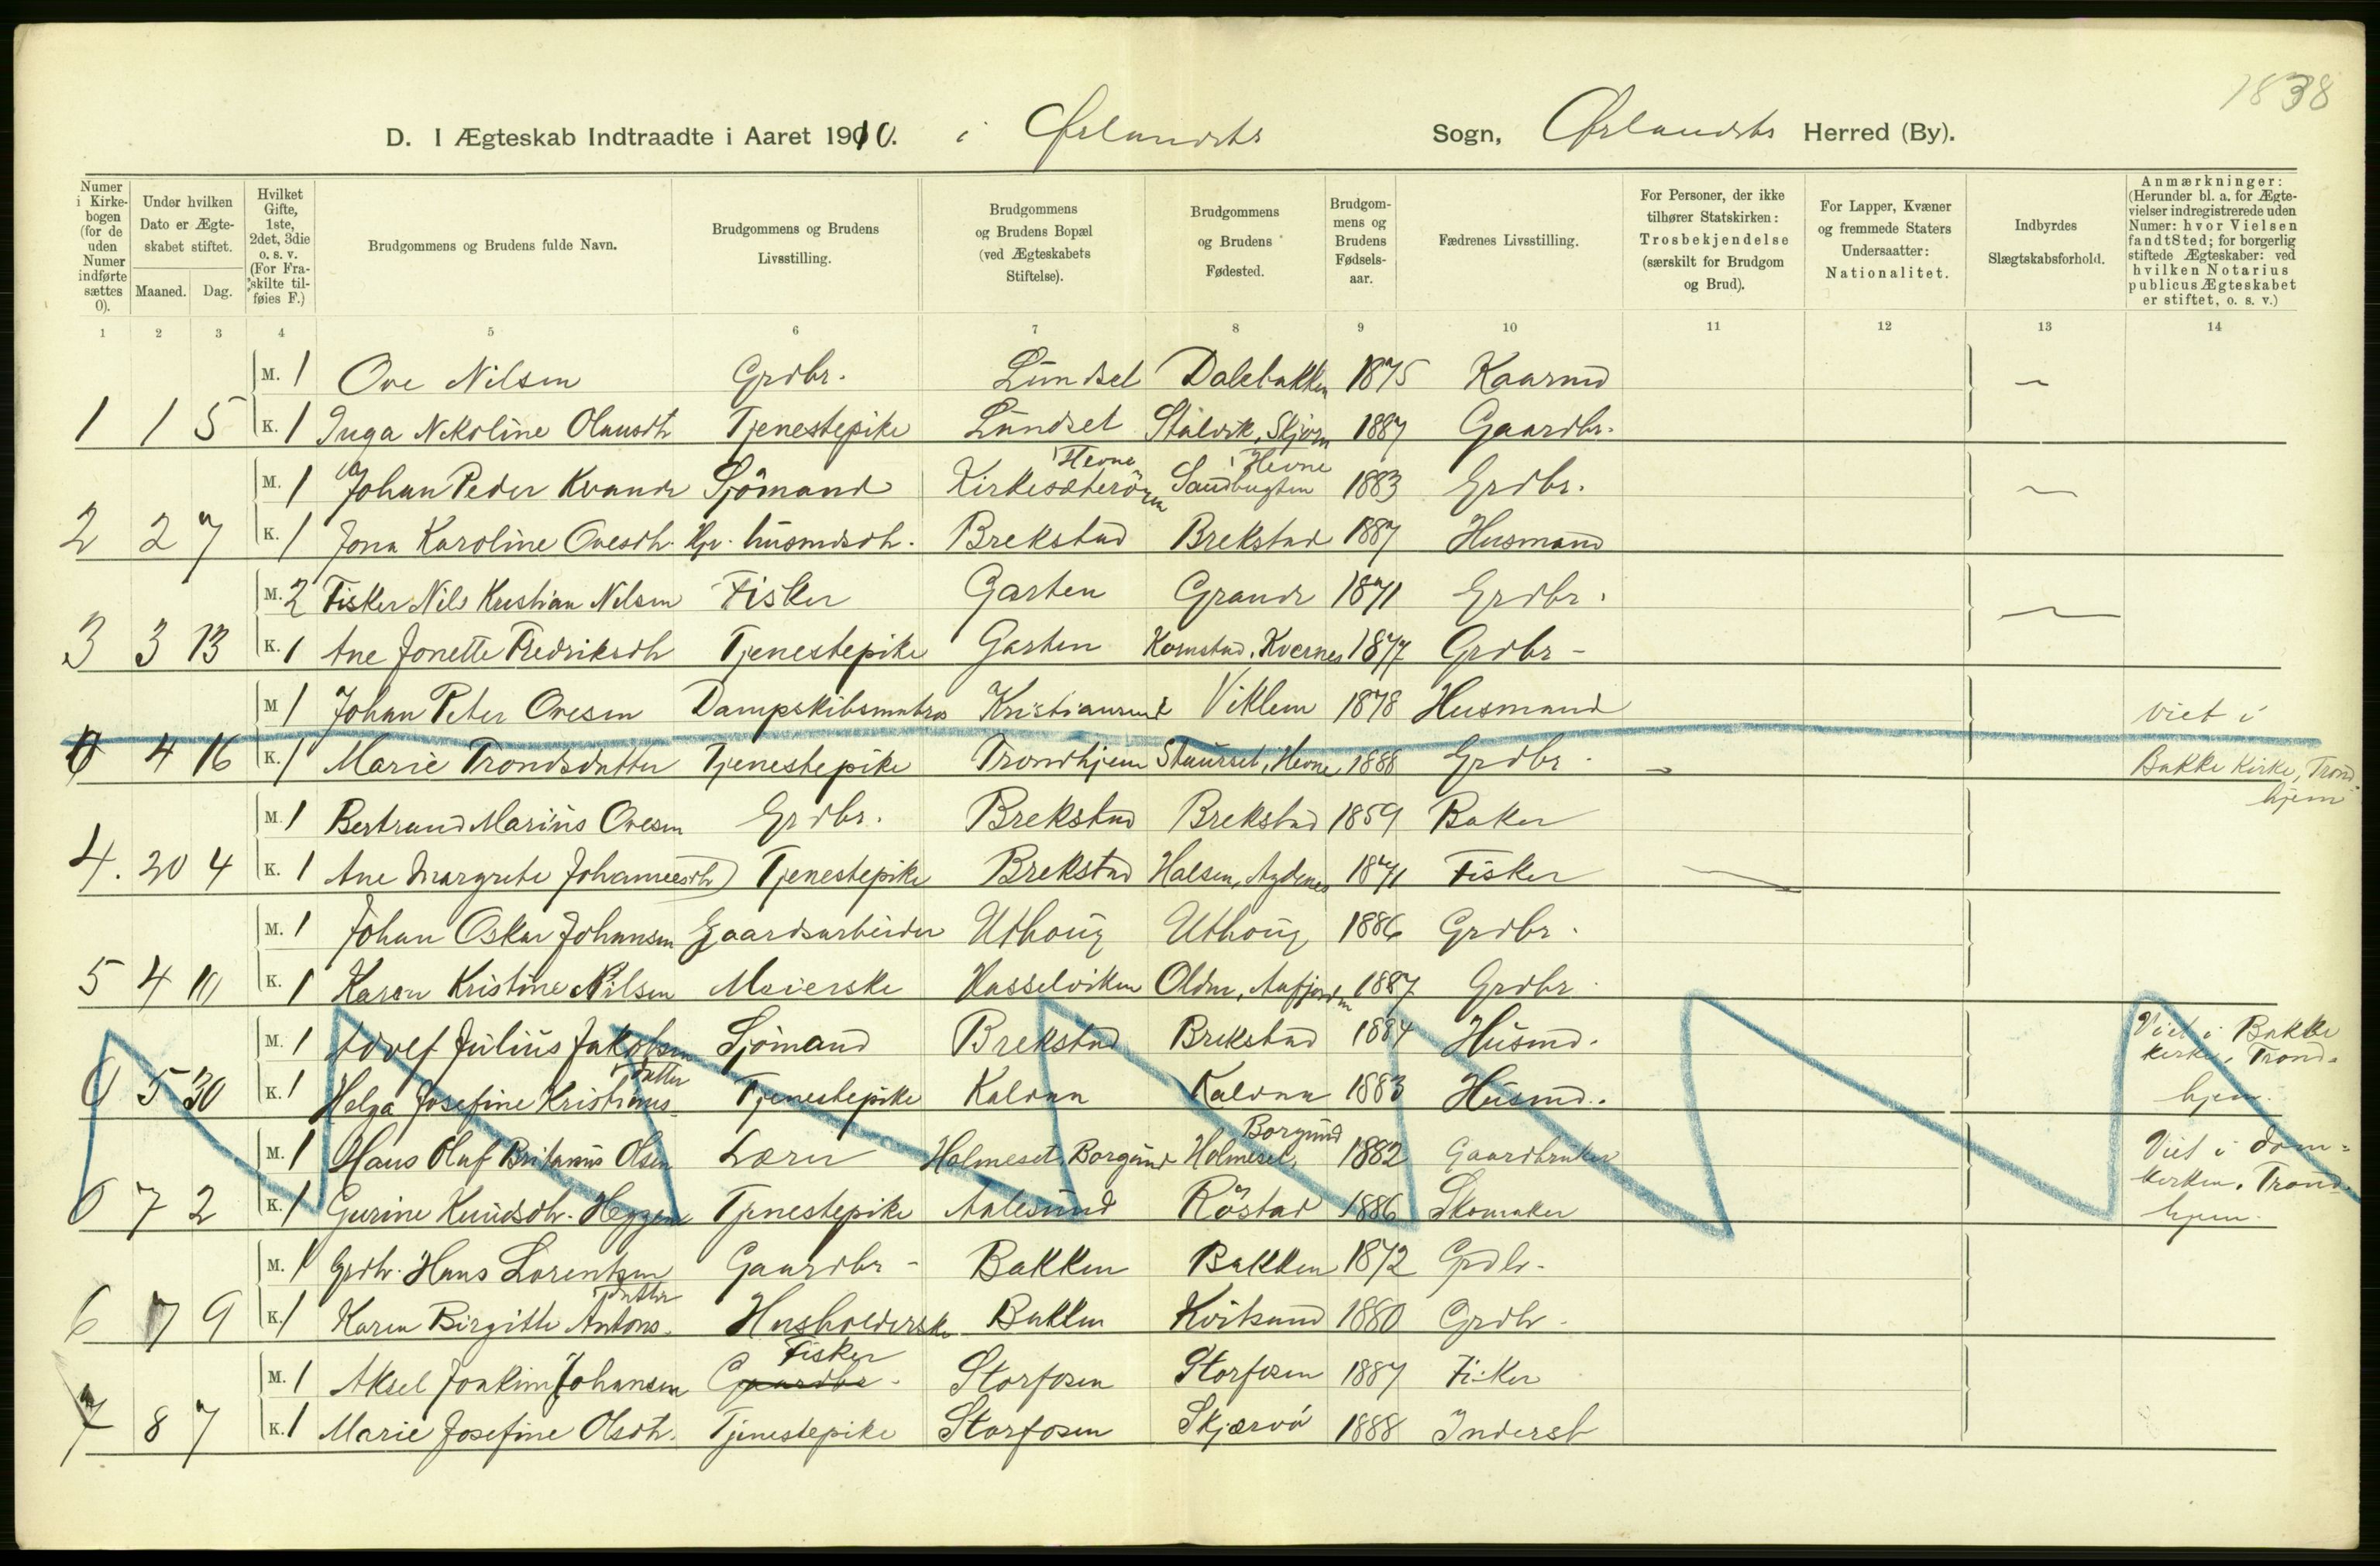 1838
D. I Ægteskab Indtraadte i Aaret 1910. i Ørlandets Sogn, Ørlandets Herred (By).
Numer i Kirkebogen (for de uden Numer indførte sættes 0).
Under hvilken Dato er Ægteskabet stiftet.
Maaned. Dag.
Hvilket Gifte, 1ste, 2det, 3die o. s. v. (For Fraskilte tilføies F.)
Brudgommens og Brudens fulde Navn.
Brudgommens og Brudens Livsstilling.
Brudgommens og Brudens Bopæl (ved Ægteskabets Stiftelse).
Brudgommens og Brudens Fødested.
Brudgommens og Brudens Fødselsaar.
Fædrenes Livsstilling.
For Personer, der ikke tilhører Statskirken: Trosbekjendelse (særskilt for Brudgom og Brud).
For Lapper, Kvæner og fremmede Staters Undersaatter: Nationalitet.
Indbyrdes Slægtskabsforhold.
Anmærkninger: (Herunder bl. a. for Ægtevielser indregistrerede uden Numer: hvor Vielsen fandt Sted; for borgerlig stiftede Ægteskaber: ved hvilken Notarius publicus Ægteskabet er stiftet, o. s. v.)
1 2 3 4 5 6 7 8 9 10 11 12 13 14
M. 1 Ove Nilsen Grdbr. Lundset Dalebakken 1875 Kaarmd
1 1 5 K. 1 Inga Nikoline Olausdtr Tjenestepike Lundset Stålvik, Skjørn 1887 Gaardbr.
M. 1 Johan Peder Kvande Sjömand Kirkesæterören, Hevne Sandbugten, Hevne 1883 Grdbr.
2 2 7 K. 1 Jona Karoline Ovesdtr. Hjv. husmdsdtr. Brekstad Brekstad 1887 Husmand
M. 2 Fisker Nils Kristian Nilsen Fisker Garten Grande 1871 Grdbr.
3 3 13 K. 1 Ane Jonette Fredriksdtr Tjenestepike Garten Kornstad, Kvernes 1877 Grdbr -
M 1 Johan Peter Ovesen Dampskibsmatros Kristiansund Viklem 1878 Husmand Viet i
0 4 16 K. 1 Marie Trondsdatter Tjenestepike Trondhjem Staurset, Hevne 1888 Grdbr. Bakke Kirke, Trondhjem
M. 1 Bertrand Marius Ovesen Grdbr. Brekstad Brekstad 1859 Baker
4. 20 4 K. 1 Ane Margrete Johannesdtr Tjenestepike Brekstad Halsen, Agdenes 1871 Fisker
M. 1 Johan Oskar Johansen Gaardsarbeider Uthoug Uthoug 1886 Grdbr.
5 4 10 K. 1 Karen Kristine Nilsen Meierske Hasselviken Olden, Aafjorden 1887 Grdbr.
M. 1 Adolf Julius Jakobsen Sjömand Brekstad Brekstad 1884 Husmd. Viet i Bakke
0 5 30 K. 1 Helga Josefine Kristiansdatter Tjenestepike Kalvaa Kalvaa 1883 Husmd. kirke, Trondhjem.
M. 1 Hans Oluf Britanus Olsen Lærer Holmeset, Borgund Holmeset, Borgund 1882 Gaardbruker Viet i Dom-
0 7 2 K. 1 Gurine Knudsdtr. Heggen Tjenestepike Aalesund Röstad 1886 Skomaker kirken, Trondhjem.
M. 1 Grdbr. Hans Lorentsen Gaardbr - Bakken Bakken 1872 Grdbr.
6 7 9 K. 1 Karen Birgitte Antonsdatter Husholderske Bakken 1880 Grdbr -
M. 1 Aksel Joakim Johansen Gaardbr. Fisker Storfosen Storfosen 1887 Fisker
7 8 7 K. 1 Marie Josefine Olsdtr. Tjenestepike Storfosen Skjærvö 1888 Inderst